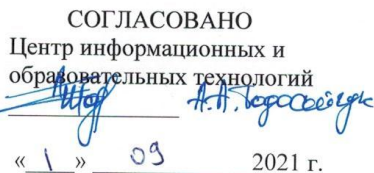 СОГЛАСОВАНО
Центр информационных и
образовательных технологий
А.А.
« 1 » 09 2021 г.